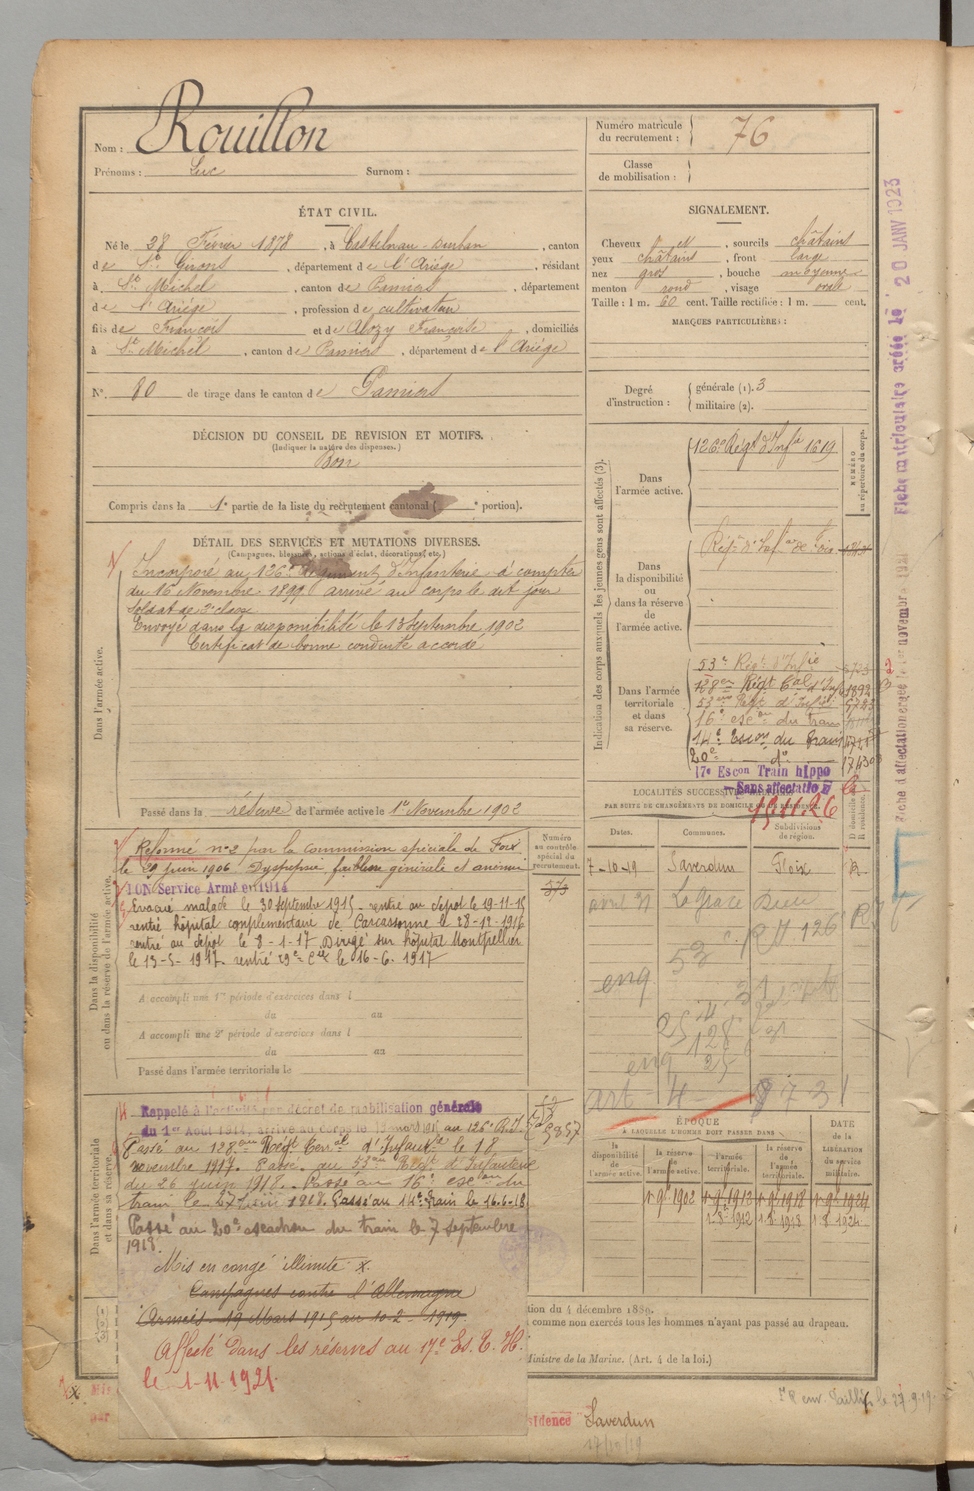 Nom : Rouillon
Prénoms : Luc Surnom :
ÉTAT CIVIL.
Né le 28 Février 1878, à Castelnau-Durban, canton
de St Girons, département de l'Ariège, résidant
à St Michel, canton de Pamiers, département
de l'Ariège, profession de cultivateur
fils de François et de Alozy Françoise, domiciliés
à St Michel, canton de Pamiers, département de l'Ariège
N°. 80 de tirage dans le canton de Pamiers
DÉCISION DU CONSEIL DE REVISION ET MOTIFS.
(Indiquer la nature des dispenses.)
Bon
Compris dans la 1e partie de la liste du recrutement cantonal ( e portion).
DÉTAIL DES SERVICES ET MUTATIONS DIVERSES.
(Campagnes, blessures, actions d'éclat, décorations, etc.)
Dans l'armée active.
Incorporé au 126e Régiment d'Infanterie à compter
du 16 Novembre 1899 arrivé au corps le dit jour
Soldat de 2e classe
Envoyé dans la disponibilité le 13 Septembre 1902
Certificat de bonne conduite accordé
Passé dans la réserve de l'armée active le 1er Novembre 1902
Dans la disponibilité
ou dans la réserve de l'armée active.
Réformé n°2 par la Commission spéciale de Foix
le 29 juin 1906 Dyspepsie faiblesse générale et anémie
BON Service Armé en 1914
Evacué malade le 30 Septembre 1915 - rentré au dépôt le 19-11-15
rentré hôpital complémentaire de Carcassonne le 28-12-1916
rentré au dépôt le 8-1-17 Dirigé sur hôpital Montpellier
le 13-5-1917. rentré 29e Cie le 16-6-1917
A accompli une 1re période d'exercices dans l
du au
A accompli une 2e période d'exercices dans l
du au
Passé dans l'armée territoriale le
Numéro
au contrôle
spécial du
recrutement.
Dans l'armée territoriale
et dans sa réserve.
Rappelé à l'activité par décret de mobilisation générale
du 1er Août 1914, arrivé au corps le 19 mars 1915 au 126e R.I.
Passé au 128eme Régt Terral d'Infanterie le 18
novembre 1917. Passé au 53eme Régt d'Infanterie
du 26 juin 1918. Passé au 16e escon du
train le 27 juin 1918. Passé au 14e Train le 16-6-18
Passé au 20e escadron du train le 7 septembre
1918.
Mis en congé illimité x.
Campagnes contre l'Allemagne
Armées 19 Mars 1915 au 10-2-1919.
Affecté dans les réserves au 17e Es. T. H.
le 1-11-1921.
Numéro matricule
du recrutement : 76
Classe
de mobilisation :
SIGNALEMENT.
Cheveux sourcils châtains
yeux châtains, front large
nez gros, bouche moyenne
menton rond, visage ovale
Taille : 1 m. 60 cent. Taille rectifiée : 1 m. cent.
MARQUES PARTICULIÈRES :
Degré
d'instruction :
générale (1). 3
militaire (2).
Indication des corps auxquels les jeunes gens sont affectés (3).
NUMÉRO
au répertoire du corps.
Dans
l'armée active.
126e Régt d'Infie 1619
Dans
la disponibilité
ou
dans la réserve
de
l'armée active.
Régt d'Infie de Foix
Dans l'armée
territoriale
et dans
sa réserve.
53e Régt d'Infie
128e Régt Tal d'Infie 1892
53eme Régt d'Infie 9723
16e escon du train
14e Escon du Train
20e do 17430
17e Escon Train hippo
Sans affectation
LOCALITÉS SUCCESSIVES HABITÉES
PAR SUITE DE CHANGEMENTS DE DOMICILE OU DE RÉSIDENCE.
Dates.
Communes.
Subdivisions
de région.
D domicile
R résidence.
7-10-19 Saverdun Foix R
avril 21 La Grace Dieu
53e RI 126
ÉPOQUE
À LAQUELLE L'HOMME DOIT PASSER DANS
la
disponibilité
de
l'armée active.
la réserve
de
l'armée active.
l'armée
territoriale.
la réserve
de
l'armée
territoriale.
DATE
de la
LIBÉRATION
du service
militaire.
1-9-1902 1-9-1912 1-9-1918 1-9-1924
1-8-1912 1-8-1918 1-8-1924
tion du 4 décembre 1889.
comme non exercés tous les hommes n'ayant pas passé au drapeau.
Ministre de la Marine. (Art. 4 de la loi.)
sidence Saverdun
17/10/19
Fiche matriculaire créée le 20 JANV 1923
Fiche d'affectation créée le 1er novembre 1921